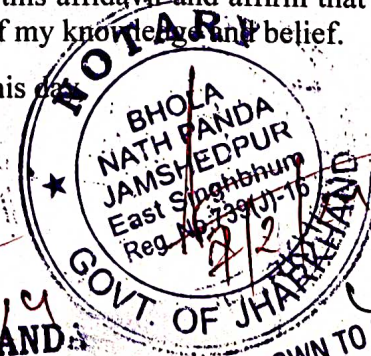 this affidavit and affirm that
f my knowledge and belief.
his day
NOTARY
BHOLA
NATH PANDA
JAMSHEDPUR
East Singhbhum
Reg. No. 739(J)-16
GOVT. OF JHARKHAND
AND
WN TO